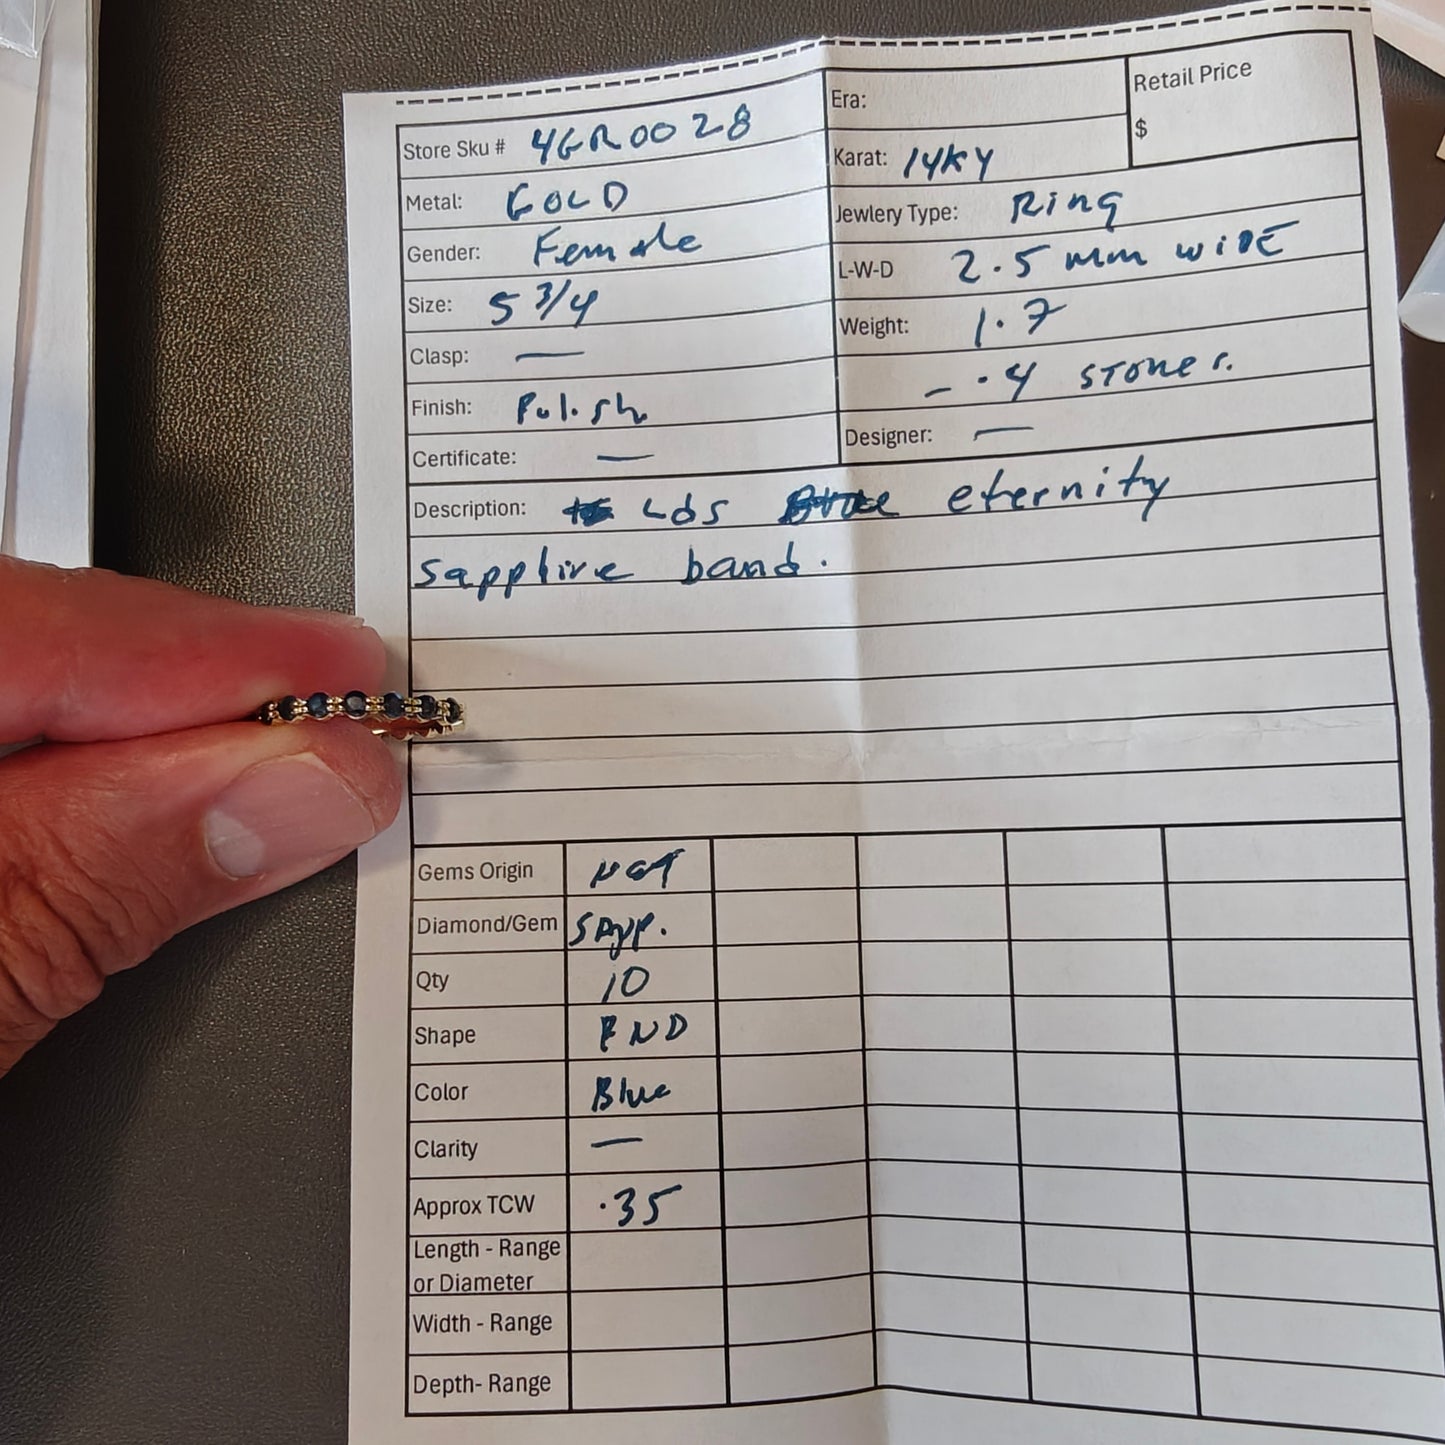 Store Sku # 4GR0028
Era:
Retail Price
$
Metal: GOLD
Karat: 14KY
Gender: Female
Jewlery Type: Ring
Size: 5 3/4
L-W-D 2.5 mm wide
Clasp: —
Weight: 1.7
Finish: Polish
- .4 stones.
Certificate: —
Designer: —
Description: Lds eternity
sapphire band.
Gems Origin NAT
Diamond/Gem SApp.
Qty 10
Shape RND
Color Blue
Clarity —
Approx TCW .35
Length - Range
or Diameter
Width - Range
Depth- Range